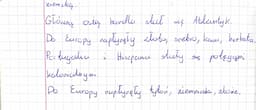 ziemską.
Główną osią handlu stał się Atlantyk.
Do Europy napłynęły złoto, srebro, kawa, herbata.
Portugalia i Hiszpania stały się potęgami
kolonialnymi.
Do Europy napłynęły tytoń, ziemniaki,